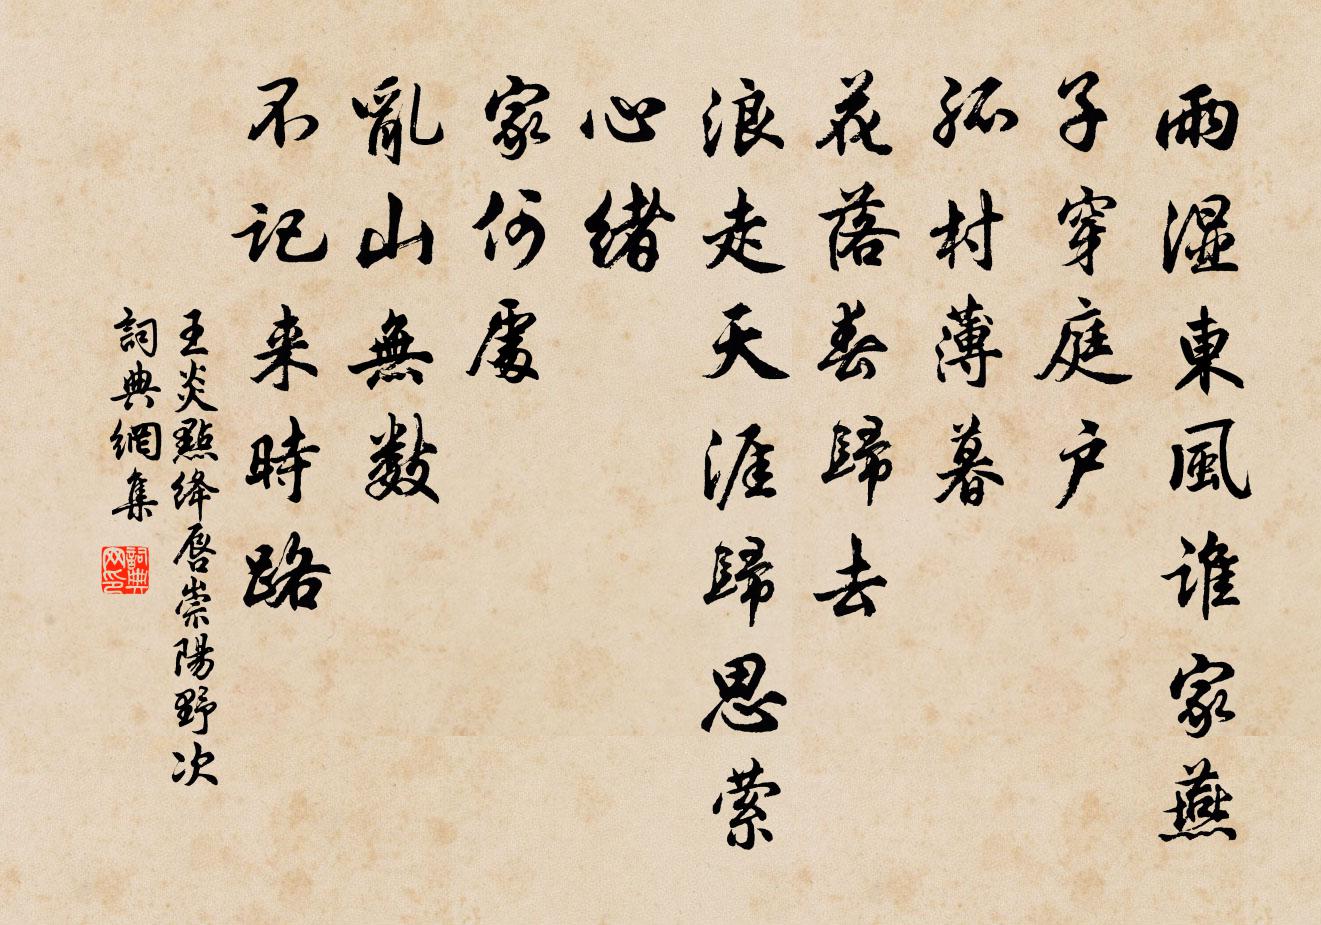 雨濕東風誰家燕
子穿庭户
孤村薄暮
花落春歸去
浪走天涯歸思縈
心緒
家何處
亂山無數
不記来時路
王炎點絳唇崇陽野次
詞典網集
詞典网印